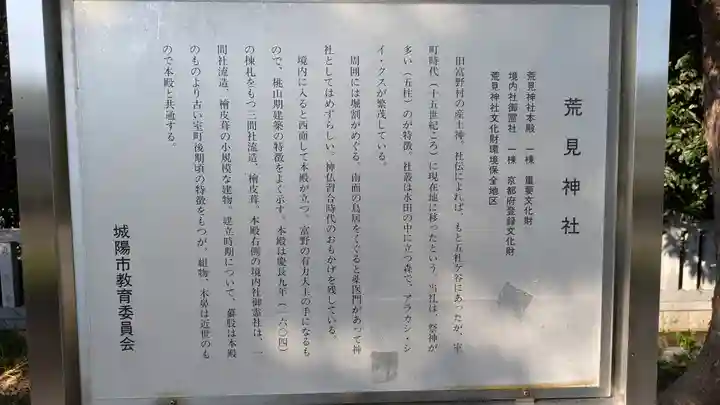 荒見神社
荒見神社本殿 一棟 重要文化財
境内社御霊社 一棟 京都府登録文化財
荒見神社文化財環境保全地区
旧富野村の産土神。社伝によれば、もと五社ケ谷にあったが、室
町時代（十五世紀ころ）に現在地に移ったという。当社は、祭神が
多い（五柱）のが特徴。社叢は水田の中に立つ森で、アラカシ・シ
イ・クスが繁茂している。
周囲には堀割がめぐる。南面の鳥居をくぐると薬医門があって神
社としてはめずらしい。神仏習合時代のおもかげを残している。
境内に入ると西面して本殿が立つ。富野の有力大工の手になるも
ので、桃山期建築の特徴をよく示す。本殿は慶長九年（一六〇四）
の棟札をもつ三間社流造、檜皮葺、本殿右側の境内社御霊社は、一
間社流造、檜皮葺の小規模な建物。建立時期について、蟇股は本殿
のものより古い室町後期頃の特徴をもつが、組物、木鼻は近世のも
ので本殿と共通する。
城陽市教育委員会